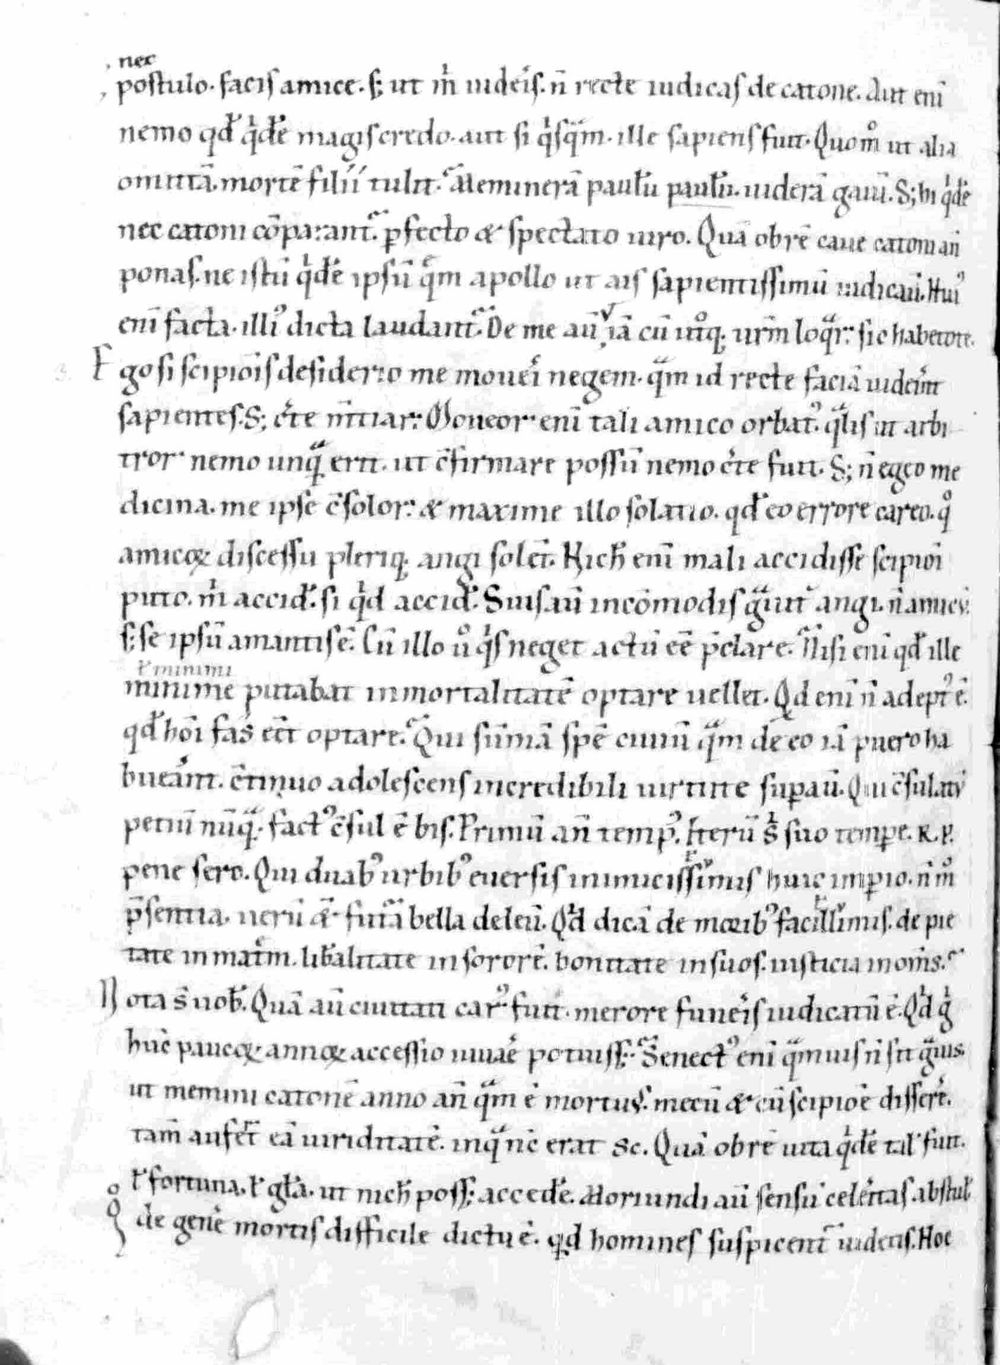 nec
postulo. facis amice. s; ut m̄ uideris. n̄ recte iudicas de catone. Aut enī
nemo qđ q̇dē magis credo. aut si q̇sq̄m. ille sapiens fuit. Quom̊ ut alia
omittā. mortē filii tulit. Meminerā paulū paulū. uiderā gauū. S; hi q̇dē
nec catoni cōparant̄. ꝑfecto & spectato uiro. Quā obrē caue catoni an̄
ponas. ne istū q̇dē ipsū q̄m apollo ut ais sapientissimū iudicau̅. Huiꝰ
enī facta. illiꝰ dicta laudant̄. De me aū iā cū utq; urm̄ loq̄r. sic habetote.
Ego si scipiois desiderio me moueri negem. q̄m id recte faciā uiderint
sapientes. S; c̄te m̄tiar. Moueor enī tali amico orbatꝰ. q̄lis ut arbi
tror nemo unq̄ erit. ut c̄firmare possū nemo c̄te fuit. S; n̄ egeo me
dicina. me ipse c̄solor. & maxime illo solatio. qđ eo errore careo. q̊
amicoꝝ discessu pleriq; angi solet̄. Nich̄ enī mali accidisse scipioī
puto. m̄ accid̄. si q̇d accid̄. Suis aū incōmodis ḡuit̄ angi. n̄ amicū.
s; se ipsū amantis ē. Cū illo ů q̇s neget actū eē p̄clare. Nisi enī qđ ille
ł minimi
minime putabat inmortalitatē optare uellet. Qd enī n̄ adeptꝰ ē.
qđ hoī fas eēt optare. Qui sūmā spē ciuiū q̄m de eo iā puero ha
buerant. c̄tinuo adolescens incredibili uirtute suꝑau̅. Qui c̄sulatū
petiū nūq̄. factꝰ c̄sul ē bis. Primū an̄ tempꝰ. Iterū s̄ suo tempe. R. P.
pene sero. Qui duabꝰ urbibꝰ euersis inimicissimis huic impio. n̄ m̊
p̄sentia. uerū & futā bella deleu̅. Qd̄ dicā de moribꝰ facillimis. de pie
tate in matrē. liberalitate in sororē. bonitate in suos. iusticia in om̄s.
Nota s̄ uob̄. Quā aū ciuitati carꝰ fuit. merore funeris iudicatū ē. Qd̄ g̊
huic paucoꝝ annoꝝ accessio iuuare potuiss;. Senectꝰ enī q̄muis n̄ sit ḡuis.
ut memini catonē anno an̄ q̄m ē mortuꝰ. mecū & cū scipioē disserē.
tam̄ aufert eā uiriditatē. inq̄ nc̄ erat sc. Quā obrē uita q̇dē tal̄ fuit.
ł fortuna. ł gła. ut nich̄ poss; accedē. Moriundi aū sensū celeritas abstul̄
de genē mortis difficile dictu ē. qd homines suspicent̄ uidetis. Hoc